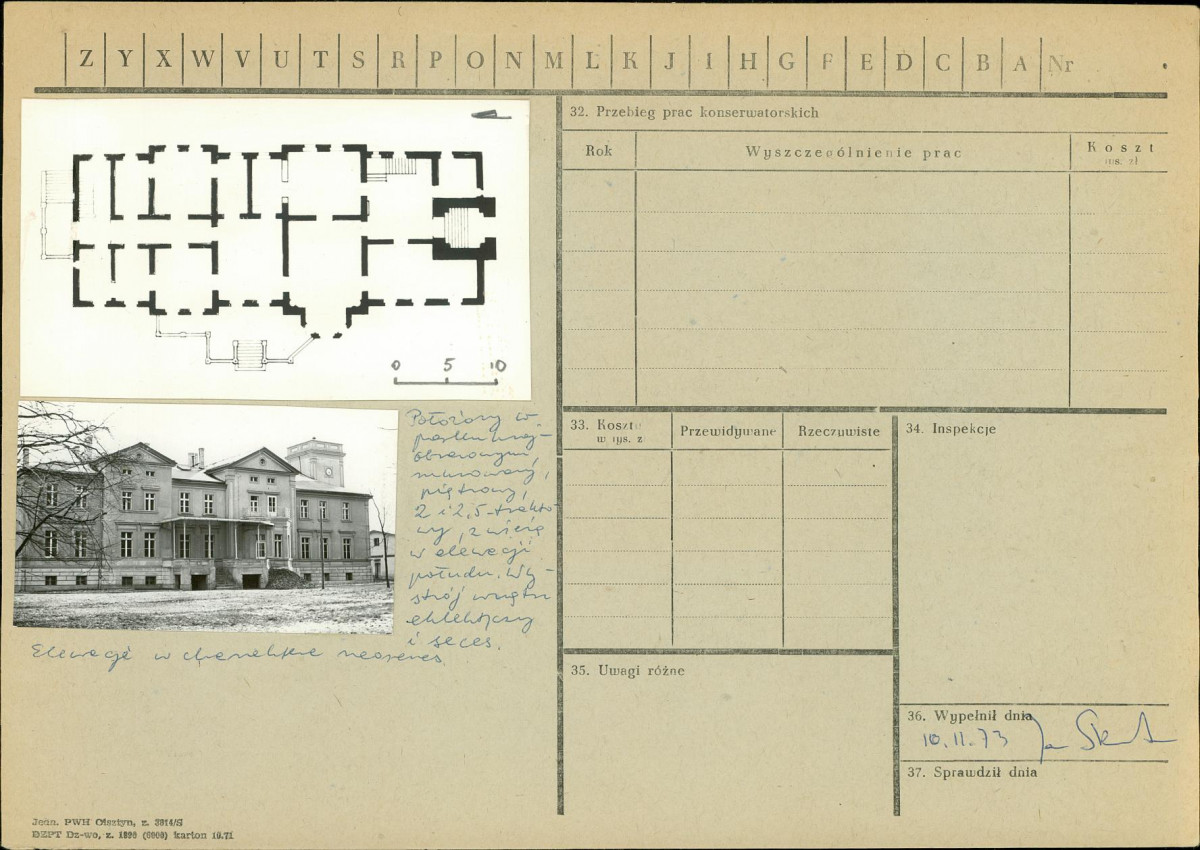 Z Y X W V U T S R P O N M Ł K J I H G F E D C B A Nr
0 5 10
Położony w
parku kraj-
obrazowym,
murowany,
piętrowy,
2 i 2,5-trakto
wy, z wieżą
w elewacji
połudn. Wy-
strój wnętrz
eklektyczny
i seces.
Elewacje w charakterze neorenes.
32. Przebieg prac konserwatorskich
Rok
Wyszczególnienie prac
Koszt
tys. zł
33. Koszty
w tys. z
Przewidywane
Rzeczywiste
34. Inspekcje
35. Uwagi różne
36. Wypełnił dnia
10.11.73
37. Sprawdził dnia
Jedn. PWH Olsztyn, z. 3814/S
DEPT Dz-wo, z. 1890 (6000) karton 10.71